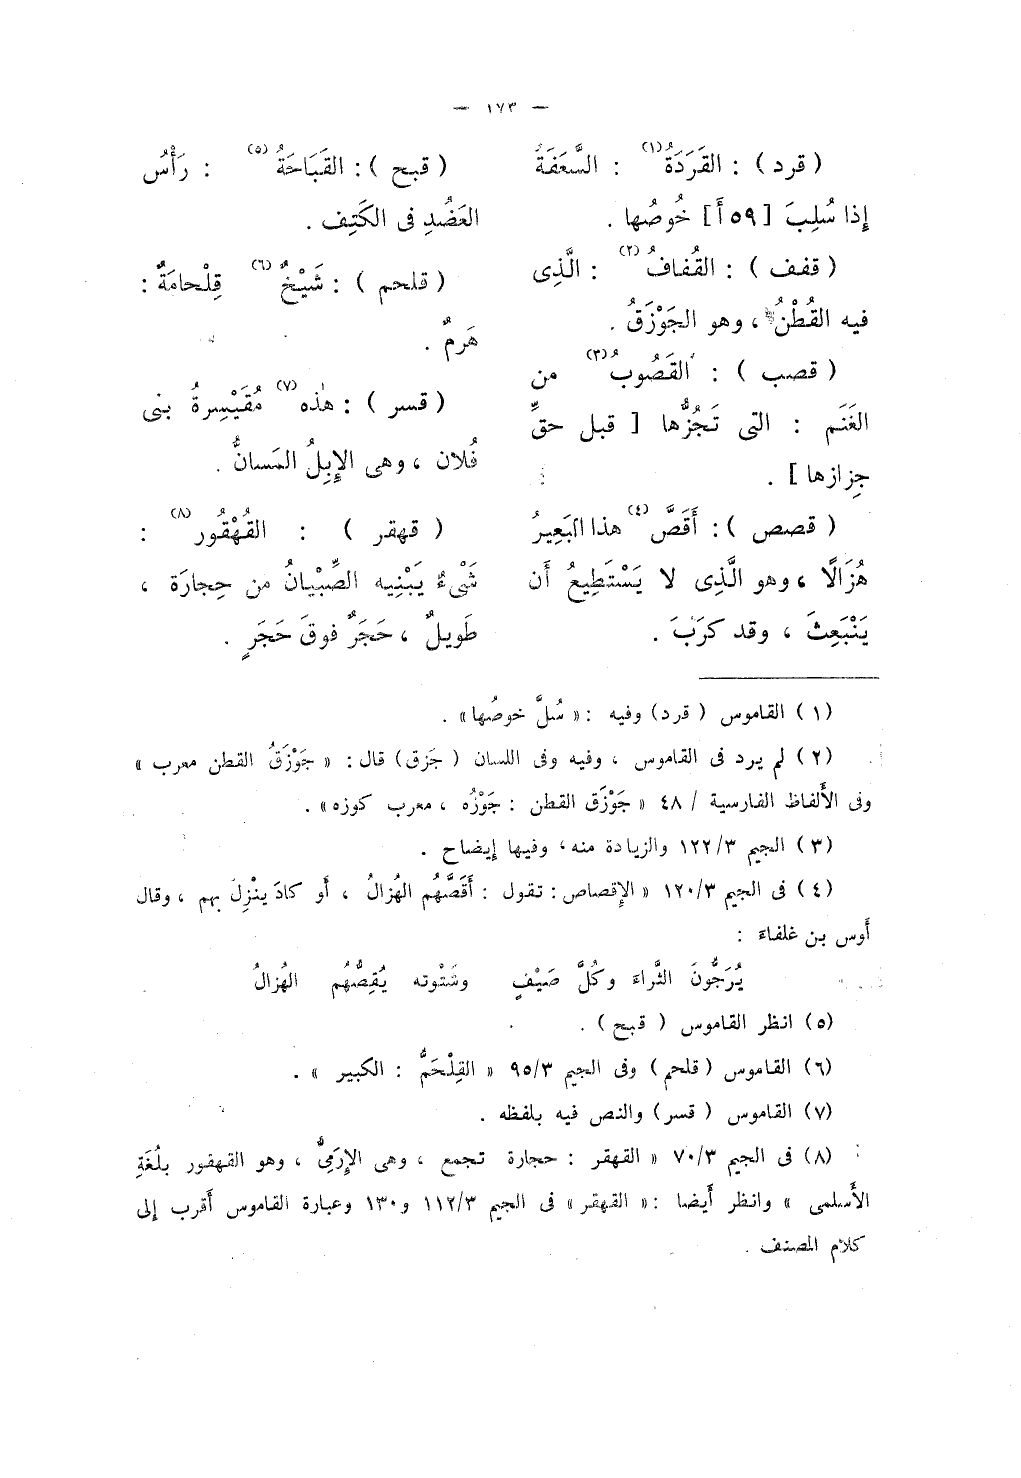 — ١٧٣ —
( قرد ) : القَرَدَةُ(١) : السَّعَفَةُ
إِذا سُلِبَ [٥٩ أَ] خُوصُها .
( قفف ) : القُفافُ(٢) : الَّذِى
فيه القُطْنُ ، وهو الجَوْزَقُ .
( قصب ) : القَصُوبُ(٣) من
الغَنَم : التى تَجُزُّها [ قبل حقِّ
جِزازها ] .
( قصص ) : أَقَصَّ(٤) هذا البَعِيرُ
هُزَالًا ، وهو الَّذِى لا يَسْتَطِيعُ أَن
يَنْبَعِثَ ، وقد كرَبَ .
( قبح ) : القَبَاحَةُ(٥) : رَأْسُ
العَضُدِ فى الكَتِف .
( قلحم ) : شَيْخٌ(٦) قِلْحامَةٌ :
هَرمٌ .
( قسر ) : هٰذه(٧) مُقَيْسِرةُ بنى
فُلان ، وهى الإِبِلُ المَسانُّ .
( قهقر ) : القُهْقُور(٨) :
شَىْءٌ يَبْنِيه الصِّبْيانُ من حِجارَة ،
طَوِيلٌ ، حَجَرٌ فوقَ حَجَرٍ .
(١) القاموس ( قرد) وفيه : « سُلَّ خوصُها» .
(٢) لم يرد فى القاموس ، وفيه وفى اللسان ( جَزق) قال : « جَوْزَقُ القطن معرب »
وفى الأَلفاظ الفارسية / ٤٨ « جَوْزَق القطن : جَوْزُه ، معرب كوزه» .
(٣) الجيم ١٢٢/٣ والزيادة منه، وفيها إيضاح .
(٤) فى الجيم ١٢٠/٣ « الإِقصاص : تقول : أَقَصَّهُم الهُزالُ ، أَو كادَ ينْزِلُ بهم ، وقال
أَوس بن غلفاءَ :
يُرَجُّونَ الثَّراءَ وكُلَّ صَيْفٍ وشَتْوته يُقِصُّهُم الهُزالُ
(٥) انظر القاموس ( قبح ) .
(٦) القاموس (قلحم) وفى الجيم ٩٥/٣ « القِلْحَمُّ : الكبير » .
(٧) القاموس ( قسر) والنص فيه بلفظه .
(٨) فى الجيم ٧٠/٣ « القهقر : حجارة تجمع ، وهى الإِرَمِىُّ ، وهو القهقور بلُغَةِ
الأَسلمى » وانظر أَيضا : « القهقر» فى الجيم ١١٢/٣ و١٣٠ وعبارة القاموس أَقرب إلى
كلام المصنف .